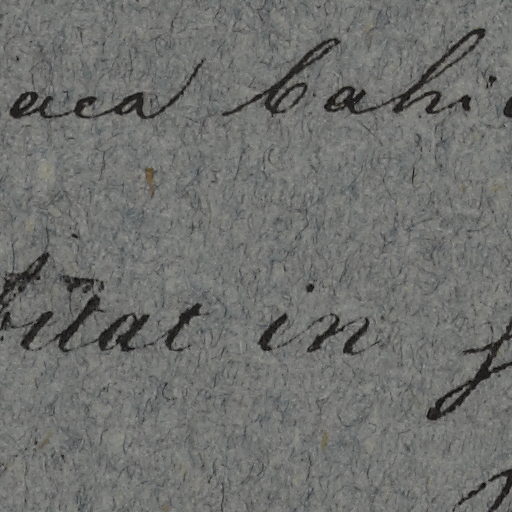 aca bahi
bitat in